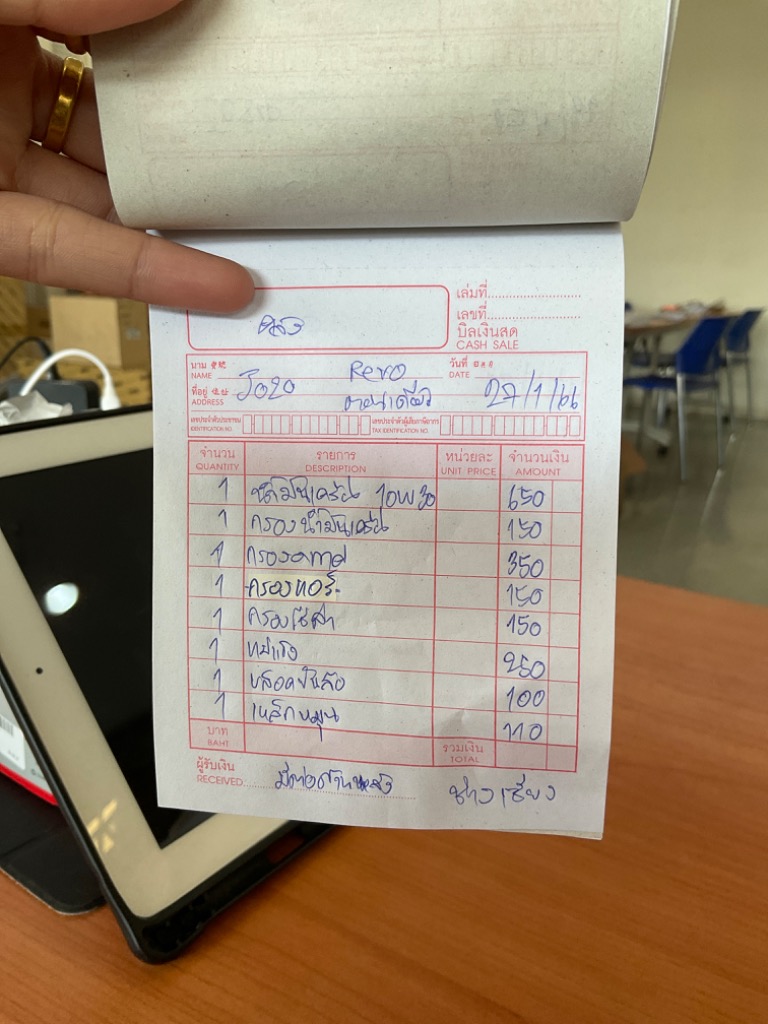 เล่มที่
เลขที่
บิลเงินสด
CASH SALE
นาม
NAME
Revo
วันที่
DATE
27/1/66
ที่อยู่
ADDRESS
ตอนเดียว
เลขประจำตัวประชาชน
IDENTIFICATION NO.
เลขประจำตัวผู้เสียภาษีอากร
TAX IDENTIFICATION NO.
จำนวน รายการ หน่วยละ จำนวนเงิน
QUANTITY DESCRIPTION UNIT PRICE AMOUNT
1 น้ำมันเครื่อง 10W30 650
1 กรองน้ำมันเครื่อง 150
1 กรองอากาศ 350
1 กรองแอร์ 150
1 กรองโซล่า 150
1 250
1 100
1 110
บาท รวมเงิน
BAHT TOTAL
ผู้รับเงิน
RECEIVED
มีต่อด้านหลัง